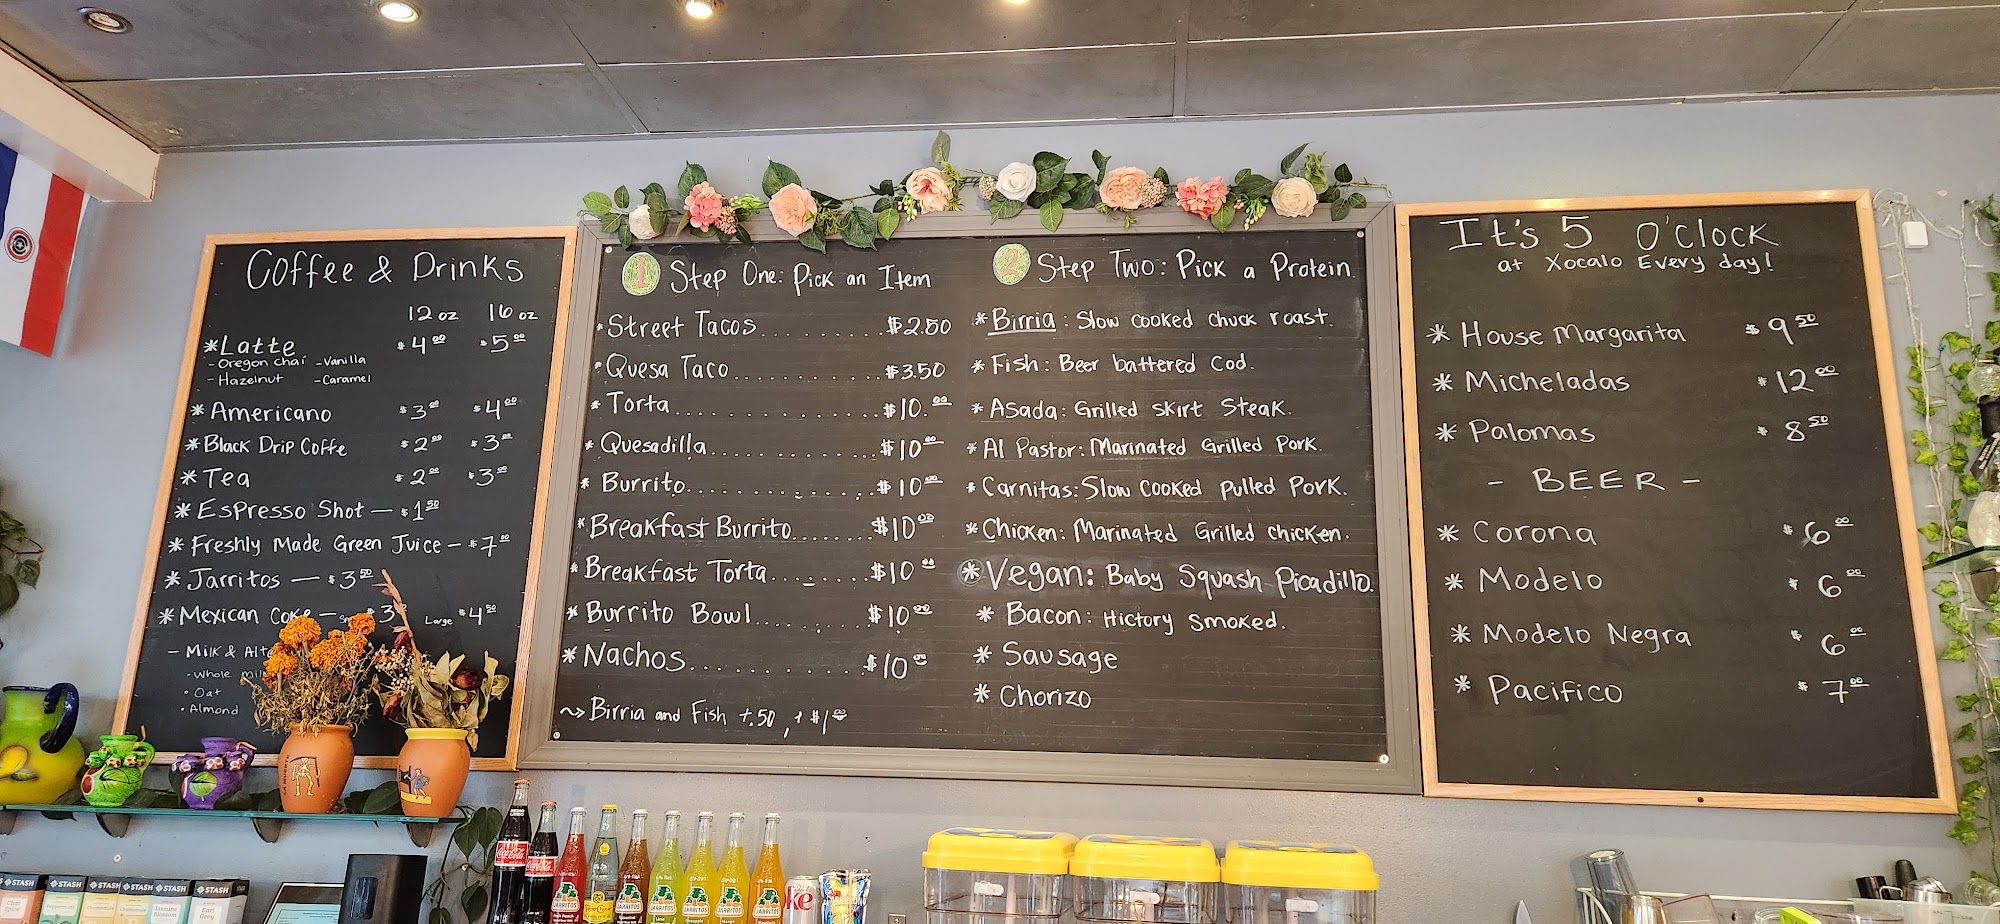 Coffee & Drinks
12 oz 16 oz
*Latte $4.00 $5.00
- Oregon chai - Vanilla
- Hazelnut - Caramel
* Americano $3.00 $4.00
* Black Drip Coffe $2.00 $3.00
* Tea $2.00 $3.00
* Espresso Shot — $1.50
* Freshly Made Green Juice — $7.00
* Jarritos — $3.50
* Mexican Coke — $3 Large $4.50
- Milk &
- Whole
• Oat
• Almond
1 Step One: Pick an Item
* Street Tacos............ $2.50
* Quesa Taco............ $3.50
* Torta............ $10.00
* Quesadilla............ $10.00
* Burrito............ $10.00
* Breakfast Burrito........ $10.00
* Breakfast Torta.......... $10.00
* Burrito Bowl.......... $10.00
* Nachos............ $10.00
~> Birria and Fish +.50, + $1.00
2 Step Two: Pick a Protein
* Birria: Slow cooked chuck roast.
* Fish: Beer battered Cod.
* Asada: Grilled Skirt Steak.
* Al Pastor: Marinated Grilled Pork.
* Carnitas: Slow Cooked Pulled Pork.
* Chicken: Marinated Grilled chicken.
* Vegan: Baby Squash Picadillo.
* Bacon: Hictory Smoked.
* Sausage
* Chorizo
It's 5 O'Clock
at Xocalo Every day!
* House Margarita $9.50
* Micheladas $12.00
* Palomas $8.50
- BEER -
* Corona $6.00
* Modelo $6.00
* Modelo Negra $6.00
* Pacifico $7.00
STASH
STASH
STASH
STASH
STASH
STASH
Earl Grey
Coca-Cola
Coca-Cola
JARRITOS
JARRITOS
JARRITOS
JARRITOS
JARRITOS
JARRITOS